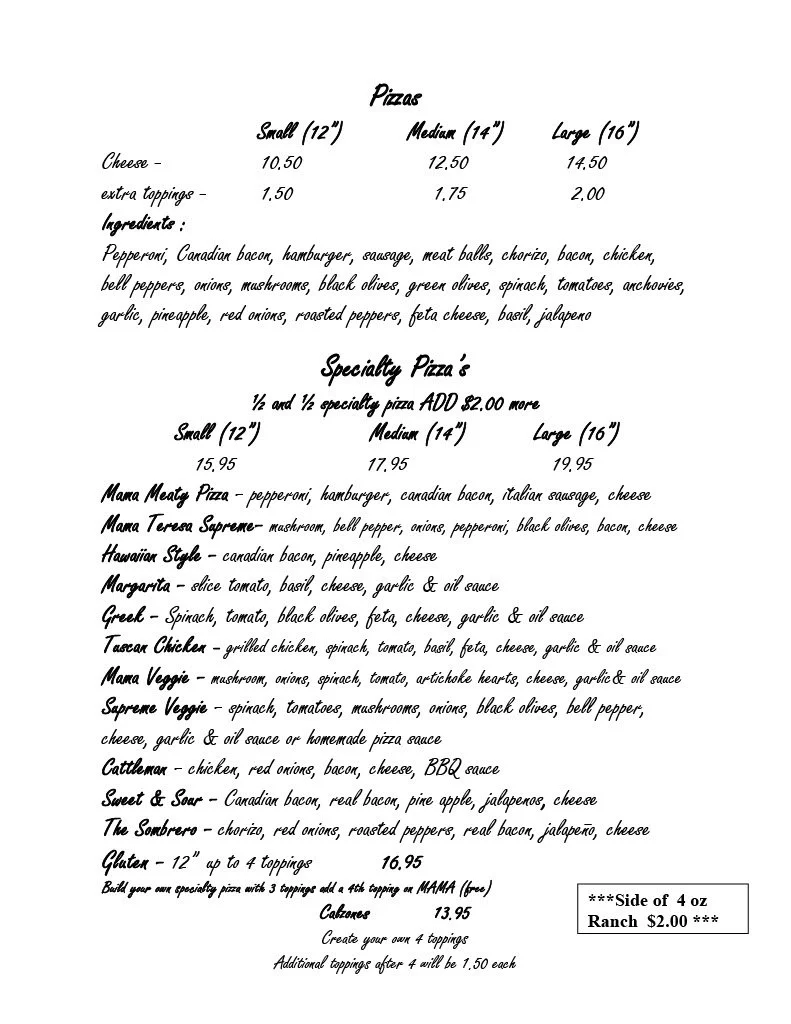 Pizzas
Small (12") Medium (14") Large (16")
Cheese - 10.50 12.50 14.50
extra toppings - 1.50 1.75 2.00
Ingredients :
Pepperoni, Canadian bacon, hamburger, sausage, meat balls, chorizo, bacon, chicken,
bell peppers, onions, mushrooms, black olives, green olives, spinach, tomatoes, anchovies,
garlic, pineapple, red onions, roasted peppers, feta cheese, basil, jalapeno
Specialty Pizza's
½ and ½ specialty pizza ADD $2.00 more
Small (12") Medium (14") Large (16")
15.95 17.95 19.95
Mama Meaty Pizza - pepperoni, hamburger, canadian bacon, italian sausage, cheese
Mama Teresa Supreme- mushroom, bell pepper, onions, pepperoni, black olives, bacon, cheese
Hawaiian Style - canadian bacon, pineapple, cheese
Margarita - slice tomato, basil, cheese, garlic & oil sauce
Greek - Spinach, tomato, black olives, feta, cheese, garlic & oil sauce
Tuscan Chicken - grilled chicken, spinach, tomato, basil, feta, cheese, garlic & oil sauce
Mama Veggie - mushroom, onions, spinach, tomato, artichoke hearts, cheese, garlic& oil sauce
Supreme Veggie - spinach, tomatoes, mushrooms, onions, black olives, bell pepper,
cheese, garlic & oil sauce or homemade pizza sauce
Cattleman - chicken, red onions, bacon, cheese, BBQ sauce
Sweet & Sour - Canadian bacon, real bacon, pine apple, jalapenos, cheese
The Sombrero - chorizo, red onions, roasted peppers, real bacon, jalapeño, cheese
Gluten - 12" up to 4 toppings 16.95
Build your own specialty pizza with 3 toppings add a 4th topping on MAMA (free)
Calzones 13.95
Create your own 4 toppings
Additional toppings after 4 will be 1.50 each
***Side of 4 oz
Ranch $2.00 ***